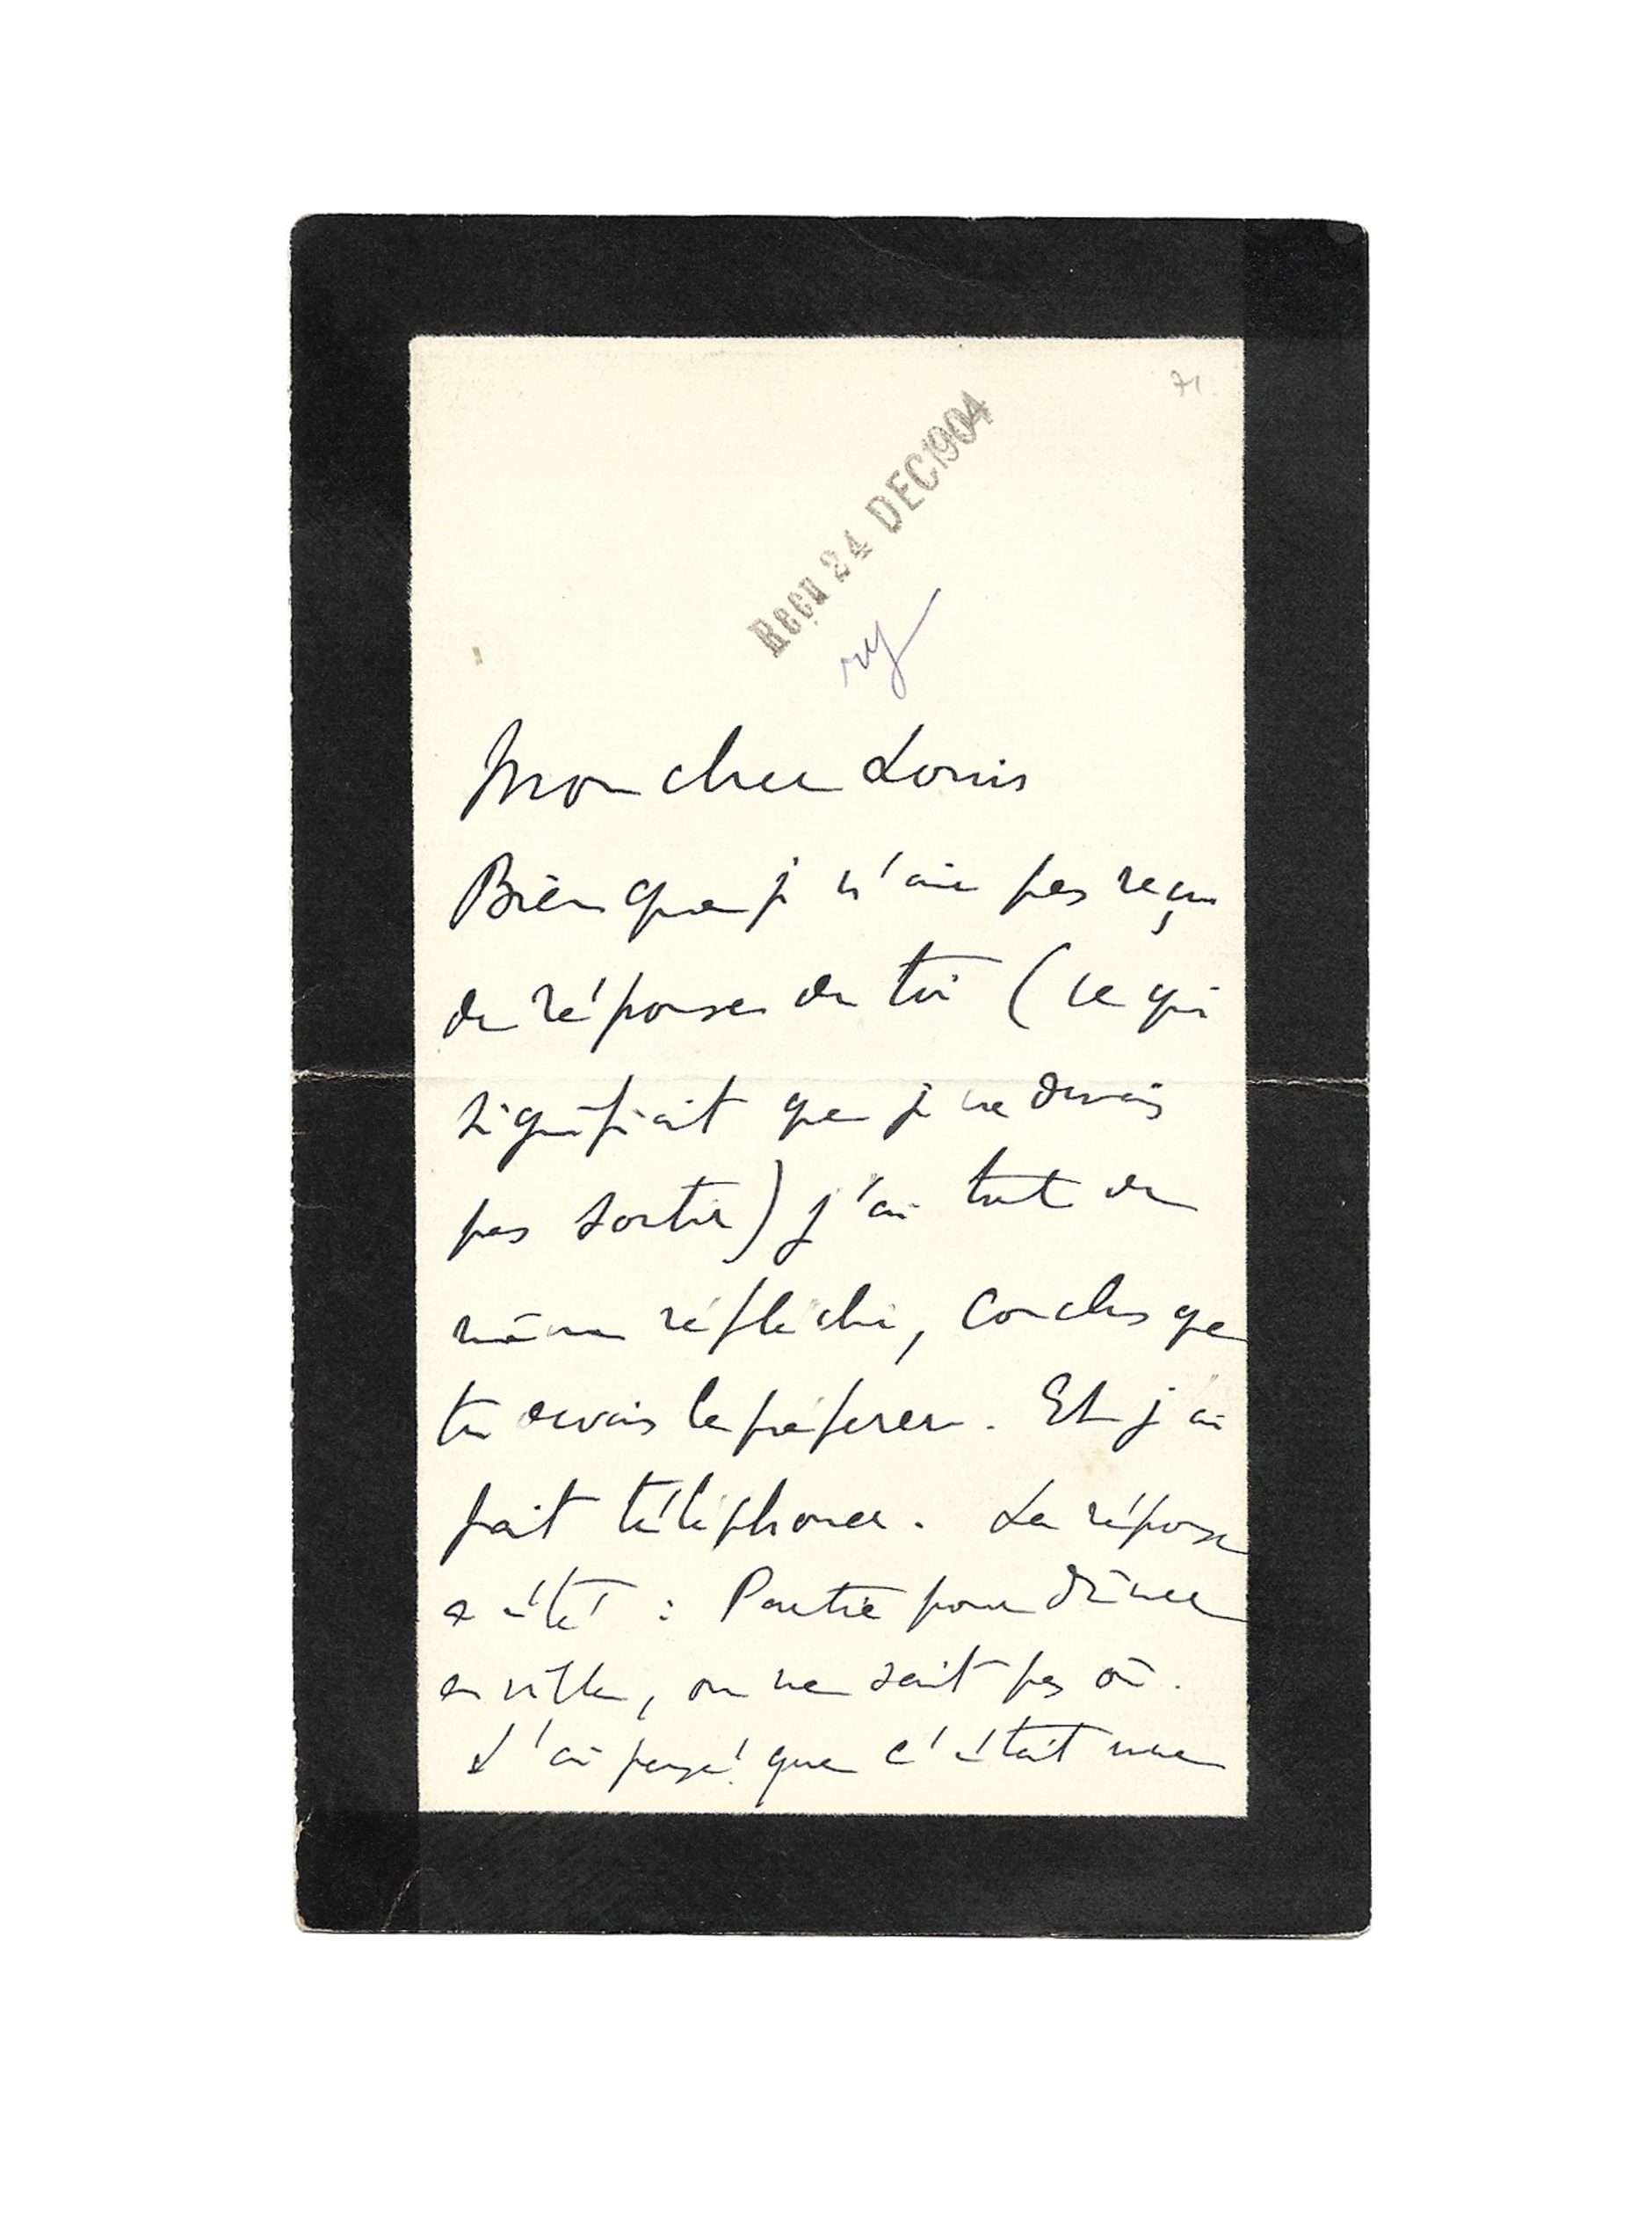 71
Reçu 24 DEC 1904
Mon cher Louis
Bien que je n'aie pas reçu
de réponse de toi (ce qui
signifiait que je ne devais
pas sortir) j'ai tout de
même réfléchi, conclus que
tu devais le préférer. Et j'ai
fait téléphoner. La réponse
a été : Partie pour dîner
en ville, on ne sait pas où.
J'ai pensé que c'était une